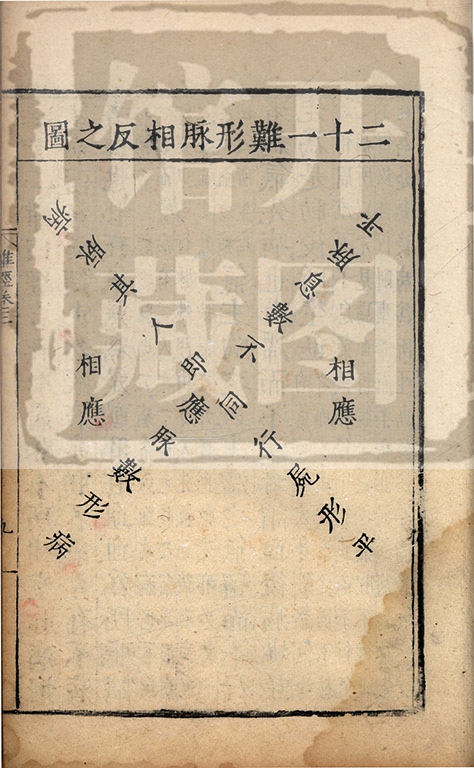 二十一難形脉相反之圖
平脉息數不同行屍形平
相應
病脉其人即應脉數形病
相應
難經卷
九
开图
馆藏